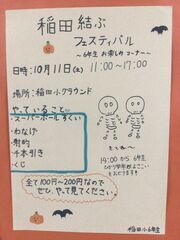 稲田 結ぶ
フェスティバル
〜6年生 お楽しみ コーナー〜
日時:10月11日(土) 11:00〜17:00
場所:稲田小グラウンド
やっていること
スーパーボールすくい
わなげ
射的
千本引き
くじ
19:00 から 6年生
全て100円〜200円なので
ぜひ、やって見てください。
稲田小6年生